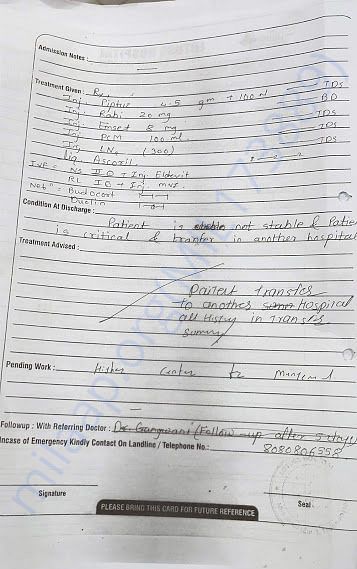 Admission Notes :
Treatment Given : Rx,
Inj. Piptue 4.5 gm + 100 TDS
Inj. Rabi 20 mg BD
Inj. Emset 8 mg TDS
Inj. PCM 100 ml TDS
Inj. (300) TDS
Liq. Ascoril
IVF = NS + Inj. Eldervit
RL + Inj. mvi
Neb" = Budocort
Duolin
Condition At Discharge :
Patient is stable not stable & Patient
is critical & in another hospital
Treatment Advised :
patient transfer
to another Hospital
all History in Transfer
summry
Pending Work : Higher Center for
Followup : With Referring Doctor : Dr. Gangwani (Follow-up after 5 days
Incase of Emergency Kindly Contact On Landline / Telephone No.: 8080806358
Signature
Seal
PLEASE BRING THIS CARD FOR FUTURE REFERENCE